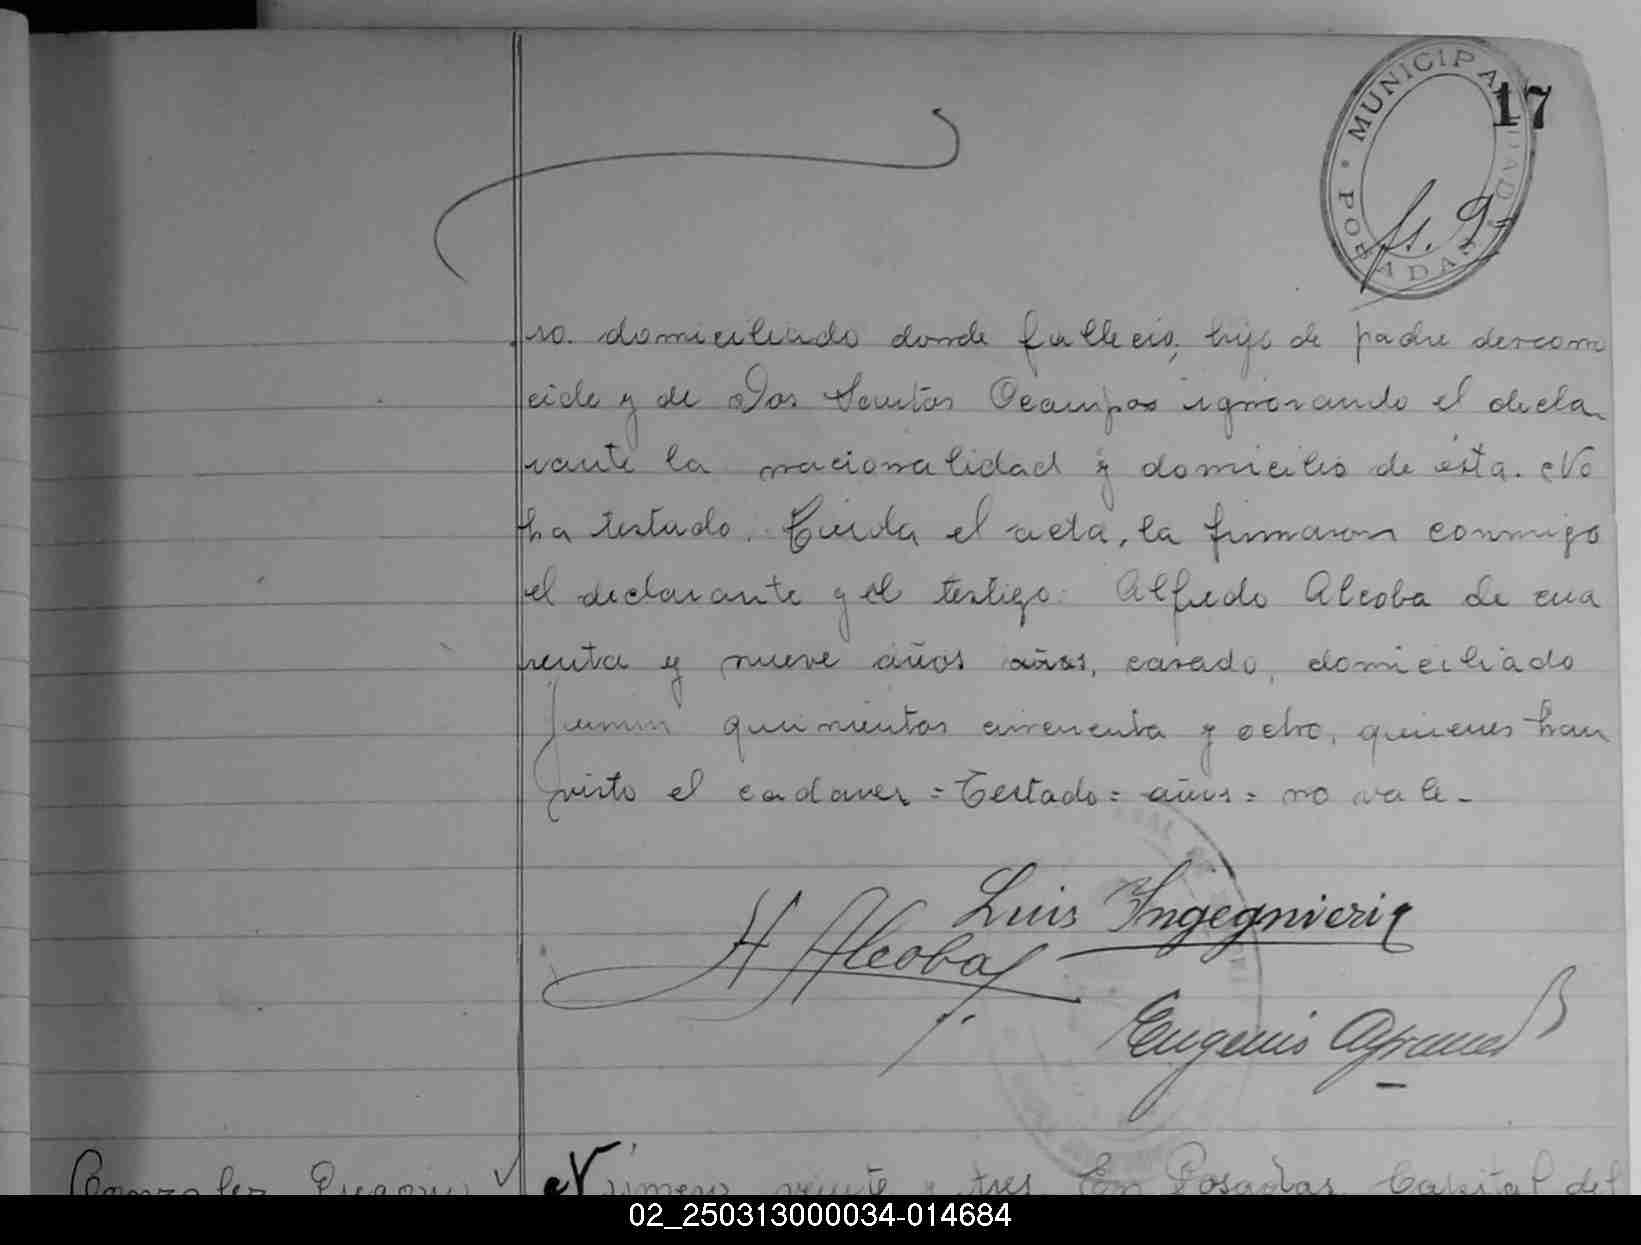 MUNICIPALIDAD POSADAS
17
fs. 9
ro. domiciliado donde falleció, hijo de padre descono
cido y de Dos Santos Ocampos ignorando el decla
rante la nacionalidad y domicilio de ésta. No
ha testado. Leida el acta, la firmaron conmigo
el declarante y el testigo: Alfredo Alcoba de cua
renta y nueve años años, casado, domiciliado
Junin quinientos cincuenta y ocho, quienes han
visto el cadaver = Testado = años = no vale -
Luis Ingegnieri
A Alcoba
Eugenio
Gonzalez Gregorio
Número veinte y tres En Posadas Capital del
02_250313000034-014684